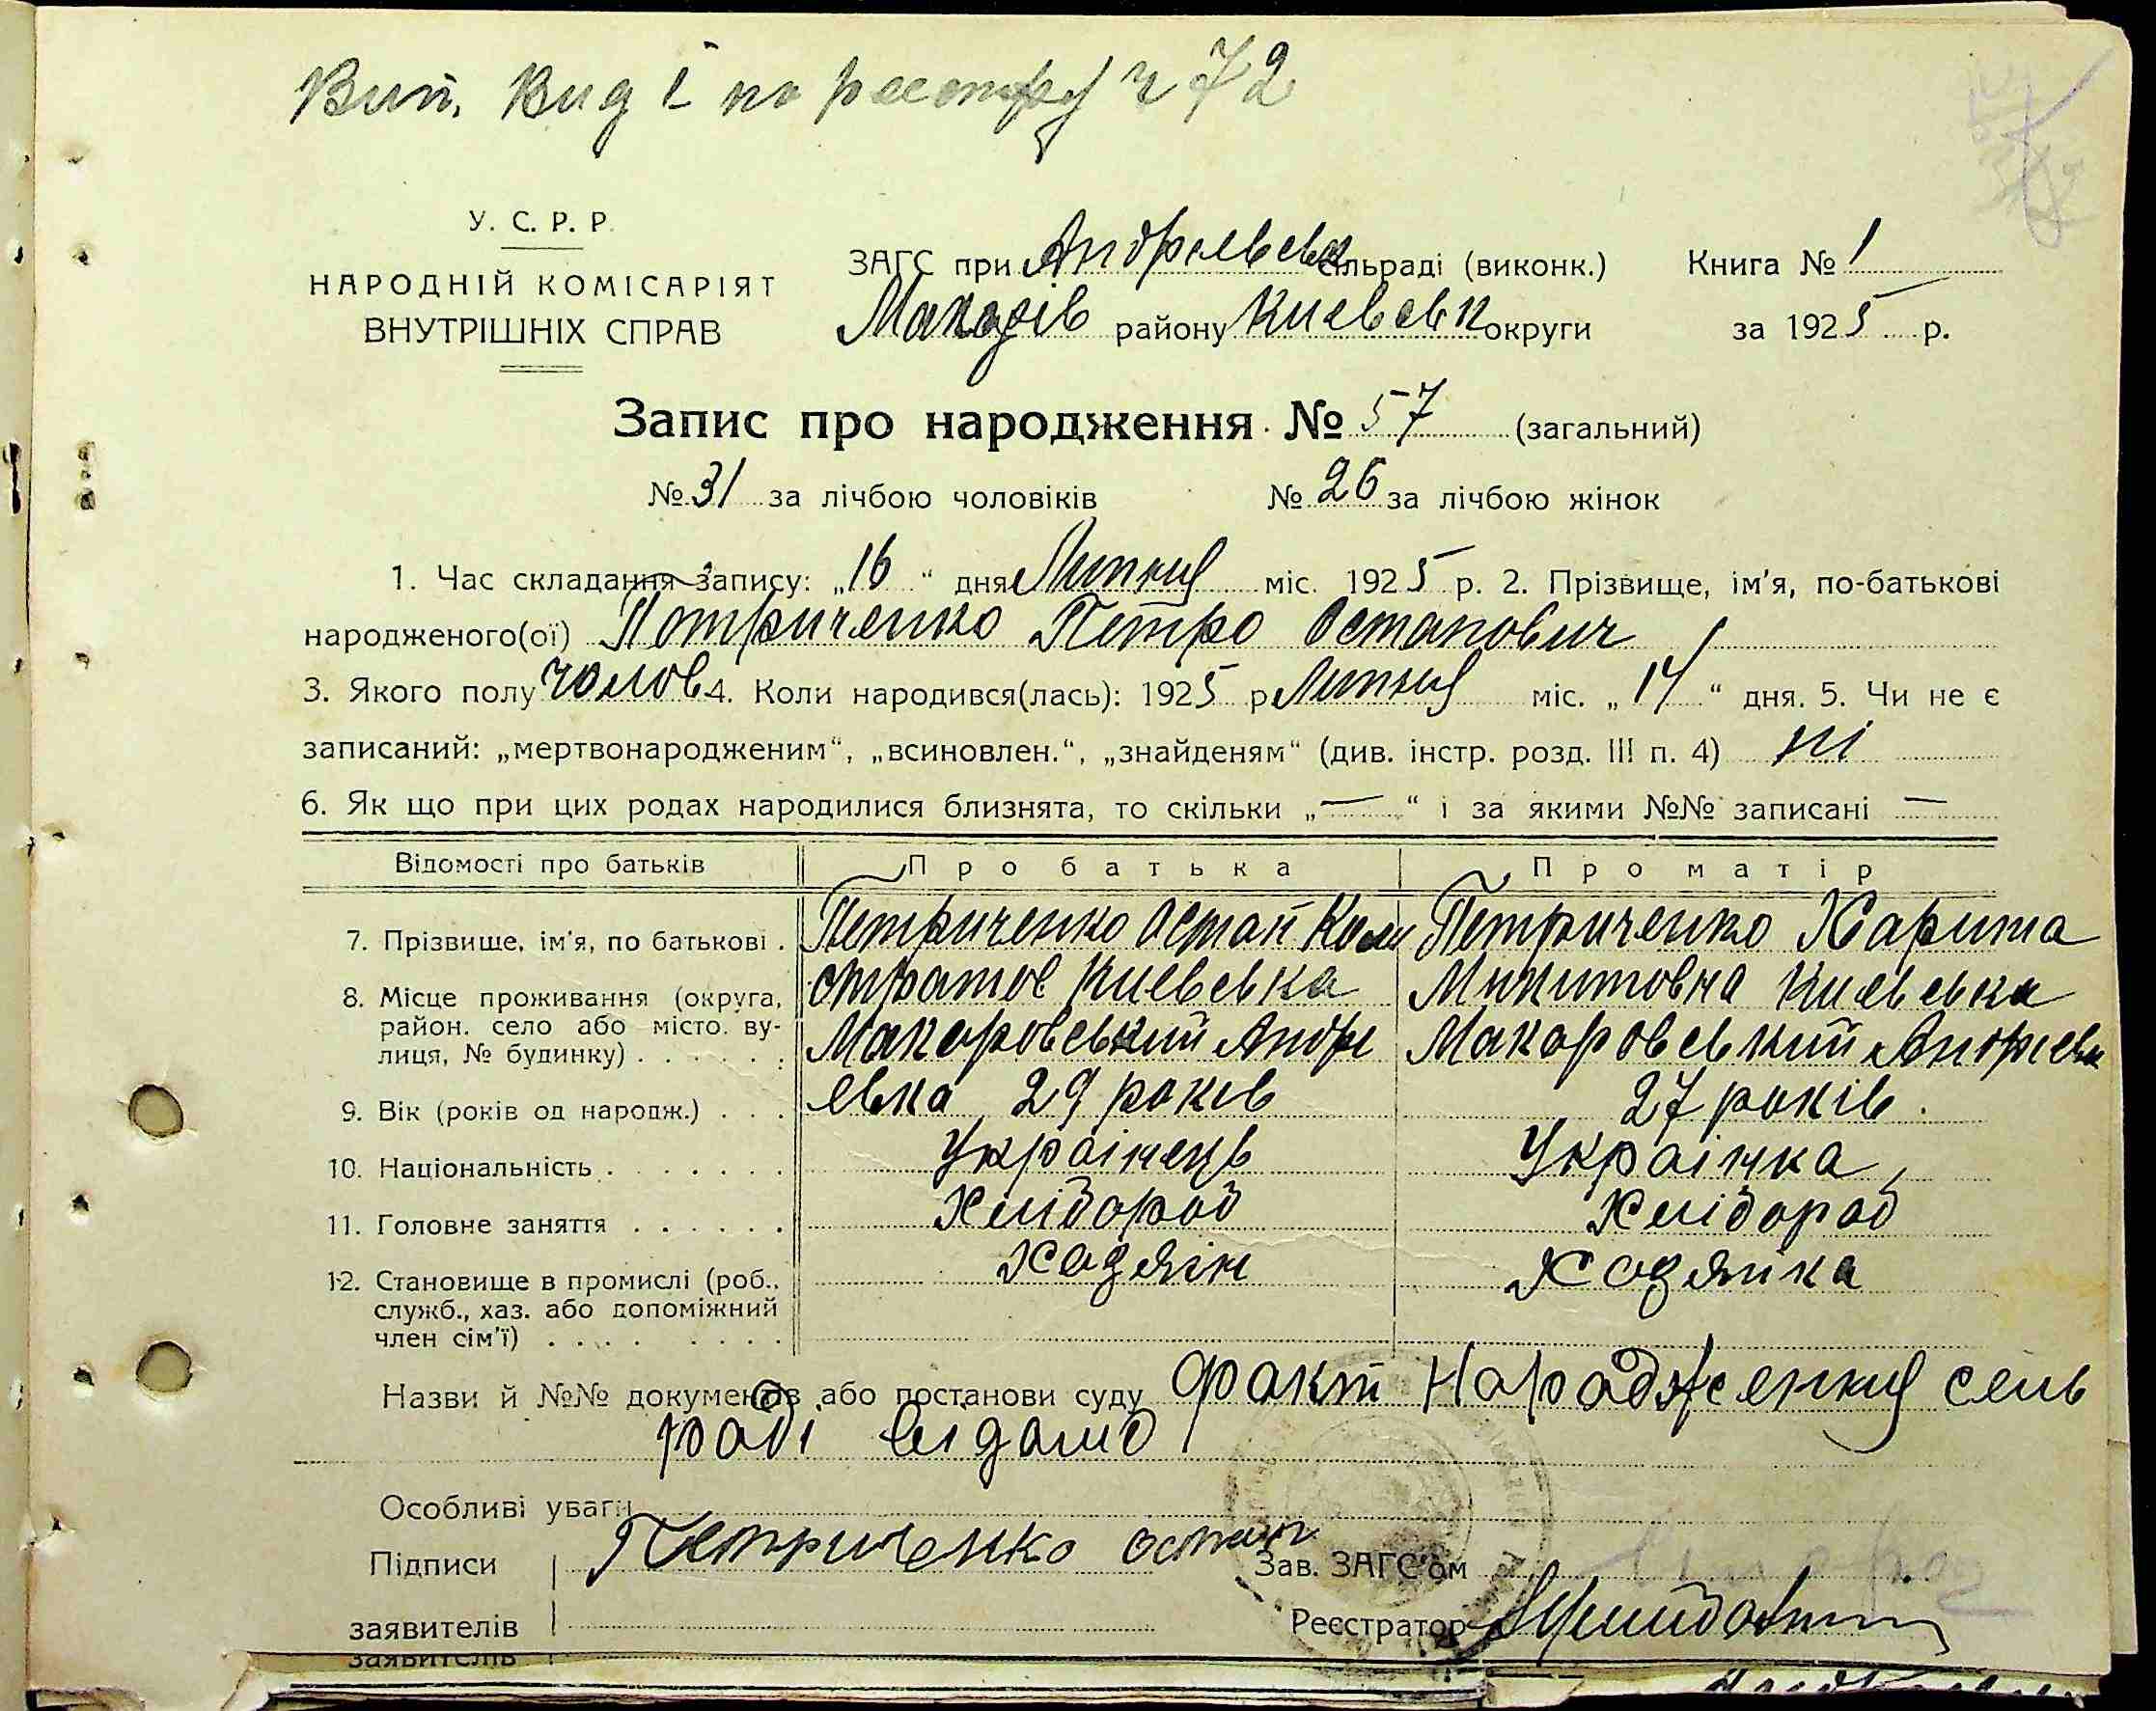 Вип. Вид і по реестру ч 72
У. С. Р. Р.
НАРОДНІЙ КОМІСАРІЯТ
ВНУТРІШНІХ СПРАВ
ЗАГС при Андриевськ сільраді (виконк.)
Макарів району Киевськ округи
Книга № 1
за 1925 р.
Запис про народження № 57 (загальний)
№ 31 за лічбою чоловіків № 26 за лічбою жінок
1. Час складання запису: „16“ дня Липня міс. 1925 р. 2. Прізвище, ім'я, по-батькові
народженого(ої) Петриченко Петро Остапович
3. Якого полу чолов 4. Коли народився(лась): 1925 р. Липня міс. „14“ дня. 5. Чи не є
записаний: „мертвонародженим“, „всиновлен.“, „знайденям“ (див. інстр. розд. III п. 4) ні
6. Як що при цих родах народилися близнята, то скільки „—“ і за якими №№ записані —
Відомості про батьків Про батька Про матір
7. Прізвище, ім'я, по батькові . Петриченко Остап Кали Петриченко Харита
8. Місце проживання (округа, стратов Киевська Микитовна Киевська
район. село або місто. ву-
лиця, № будинку) . . . . . . Макаровський Андрі Макаровський Андріевк
9. Вік (років од народж.) . . . евка 29 років 27 років.
10. Національність . . . . . . . Украінець Украінка
11. Головне заняття . . . . . . Хлібороб Хлібороб
12. Становище в промислі (роб., Хазяін Хазяйка
служб., хаз. або допоміжний
член сім'ї) . . . . . . . . .
Назви й №№ документів або постанови суду Факт Народження сель
раді відомо
Особливі уваги
Підписи Петриченко остап Зав. ЗАГС'ом
заявителів Реєстратор
заявителів